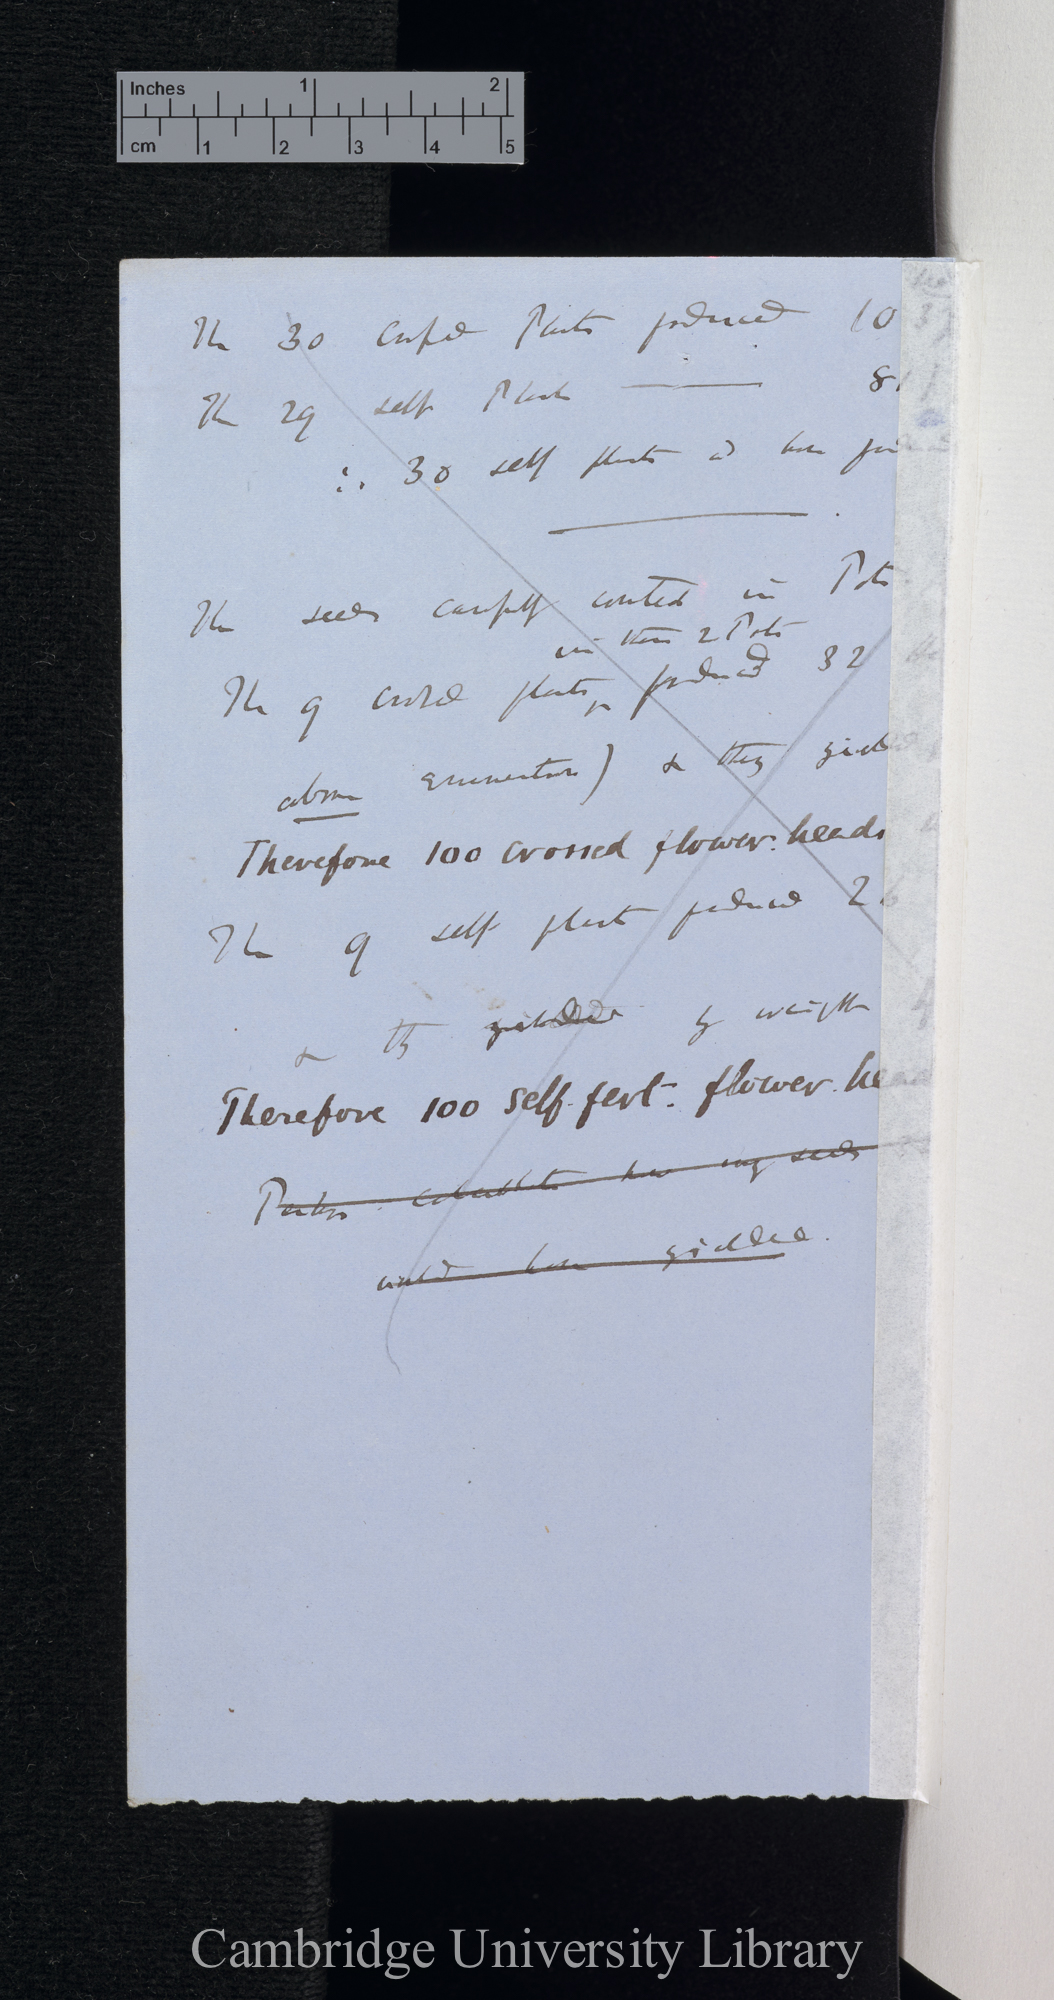 Inches 1 2
cm 1 2 3 4 5
The 30 crossed Plants produced 10
The 29 self Plants ——— 8
∴ 30 self plants wd have
The seeds carefully counted in Pots
in these 2 Pots
The 9 crossed plants produced 32
above enumeration) & they yield
Therefore 100 crossed flower-heads
The 9 self plants produced 2
& they yielded by weight
Therefore 100 self-fert: flower-he
Perhaps calculate how many seeds
would have yielded.
Cambridge University Library